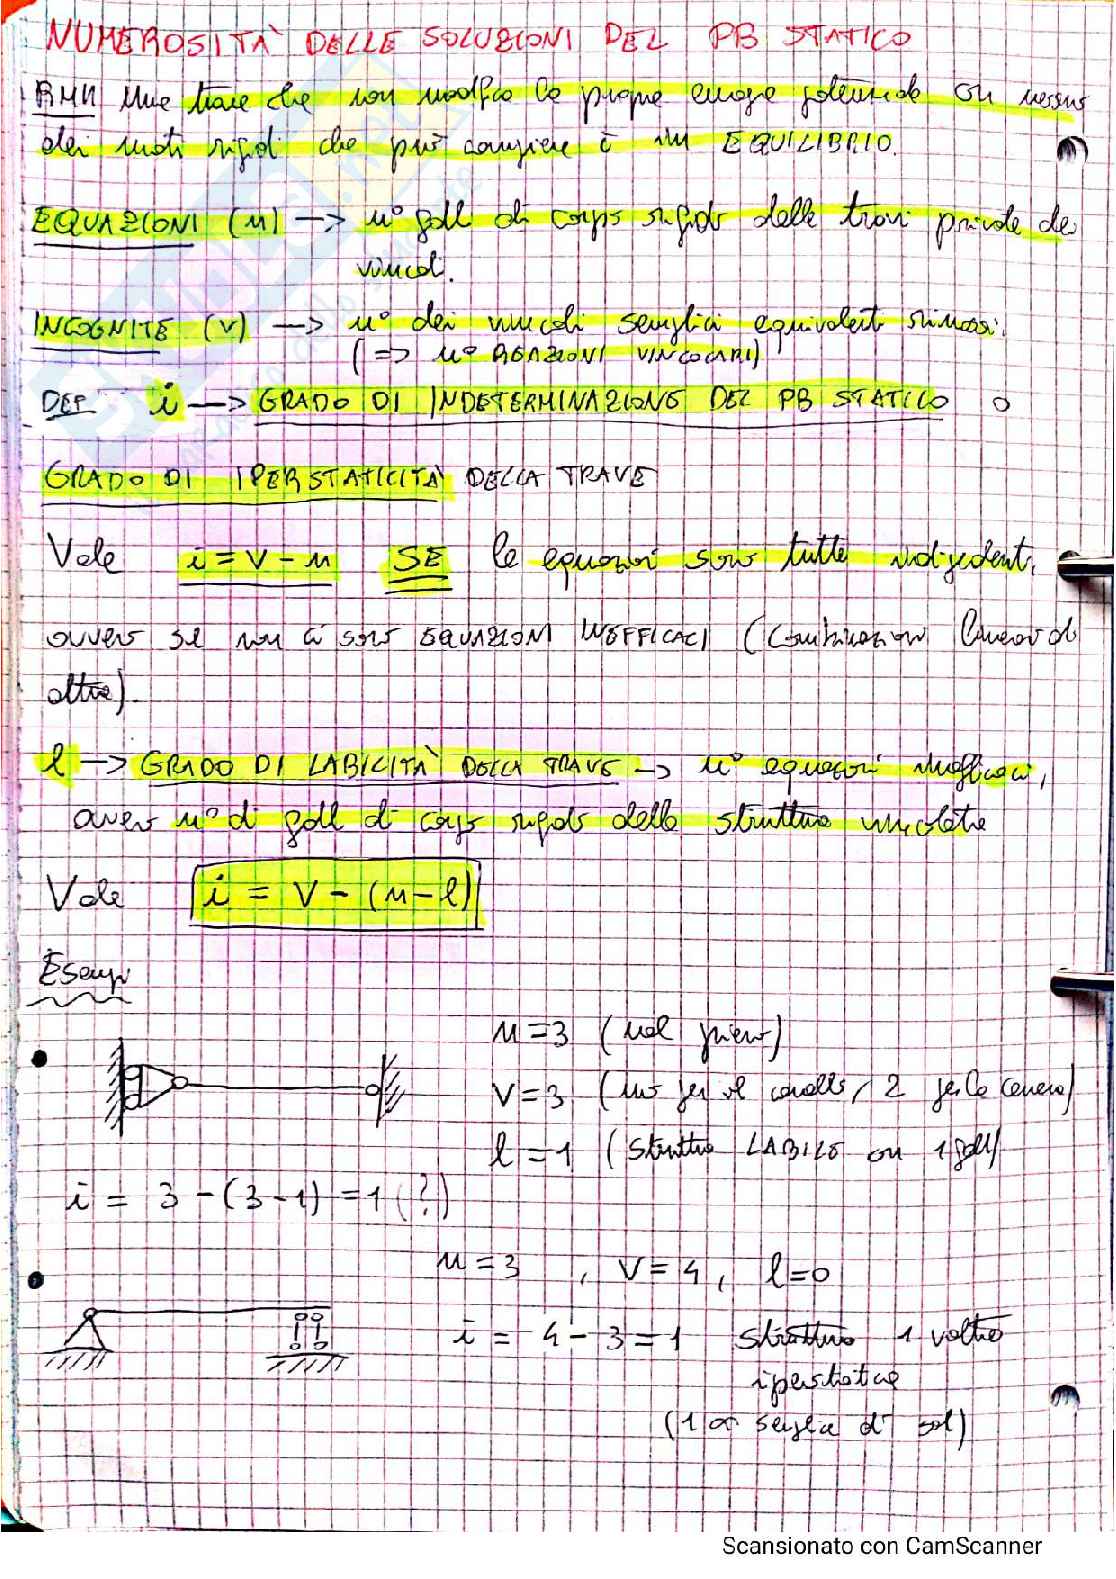 NUMEROSITÀ DELLE SOLUZIONI DEL PB STATICO
RMK Una trave che non modifica la propria energia potenziale con nessuno
dei moti rigidi che può compiere è in EQUILIBRIO.
EQUAZIONI (n) → n° gdl di corpo rigido delle travi private dei
vincoli.
INCOGNITE (v) → n° dei vincoli semplici equivalenti rimossi.
(⇒ n° REAZIONI VINCOLARI)
DEF i → GRADO DI INDETERMINAZIONE DEL PB STATICO o
GRADO DI IPERSTATICITÀ DELLA TRAVE
Vale i = v - n SE le equazioni sono tutte indipendenti,
ovvero se non ci sono EQUAZIONI INEFFICACI (combinazioni lineari di
altre).
l → GRADO DI LABILITÀ DELLA TRAVE → n° equazioni inefficaci,
ovvero n° di gdl di corpo rigido della struttura vincolata
Vale i = v - (n - l)
Esempi
n = 3 (nel piano)
v = 3 (uno per il carrello, 2 per la cerniera)
l = 1 (struttura LABILE con 1 gdl)
i = 3 - (3 - 1) = 1 (?)
n = 3 , v = 4 , l = 0
i = 4 - 3 = 1 struttura 1 volta
iperstatica
(1 ∞ semplice di sol)
Scansionato con CamScanner